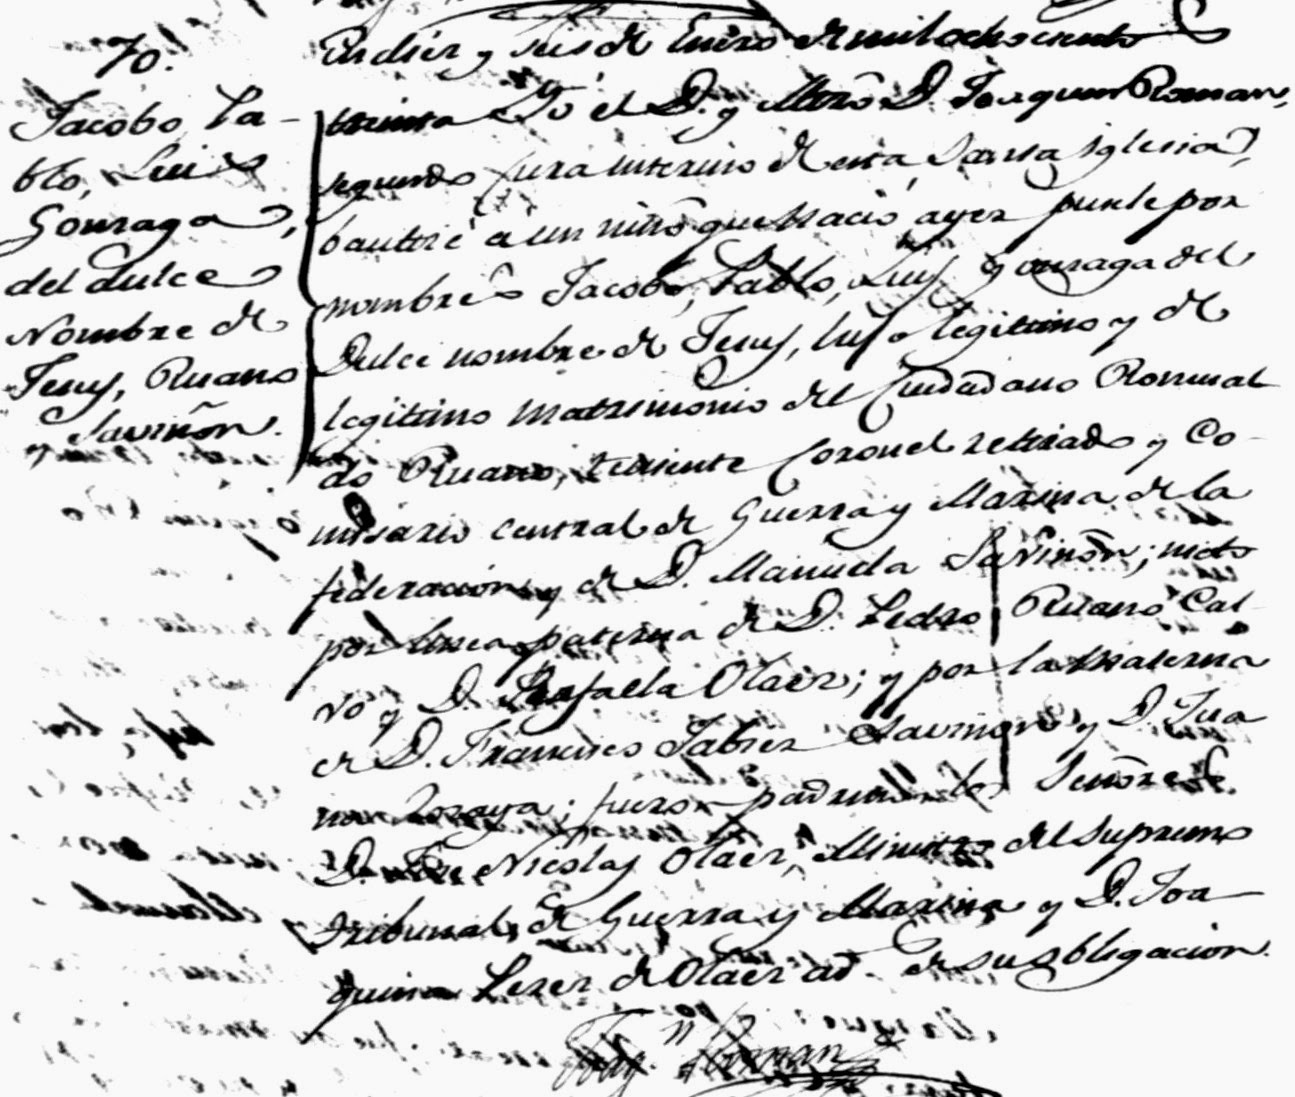 70.
Jacobo, Pa-
blo, Luis
Gonzaga,
del dulce
Nombre de
Jesus, Ruano
y Saviñon.
En diez y seis de Enero de mil ochocientos
treinta Yo el D. y Mtrõ D. Joaquin Roman,
segundo Cura interino de esta Santa Iglesia,
bautizé a un niño que nació ayer pusele por
nombre Jacobo, Pablo, Luis Gonzaga del
Dulce nombre de Jesus, hijo legitimo y de
legitimo matrimonio del Ciudadano Romual
do Ruano, teniente Coronel retirado y Co-
misario central de Guerra y Marina de la
federacion y de D. Manuela Saviñon; nieto
por linea paterna de D. Pedro Ruano Cal-
vo y D. Rafaela Olaez; y por la materna
de D. Francisco Jabier Saviñon y D. Jua
na; fueron padrinos los Señores
D. José Nicolas Olaez, Ministro del Supremo
tribunal de Guerra y Marina y D. Joa
quina Perez de Olaez ad. de su obligacion.
Roman